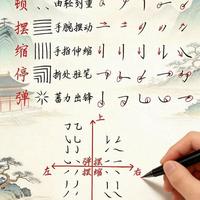 顿 由轻到重
摆 手腕摆动
缩 手指伸缩
停 折处驻笔
弹 蓄力出锋
上
左 弹摆 右
摆缩